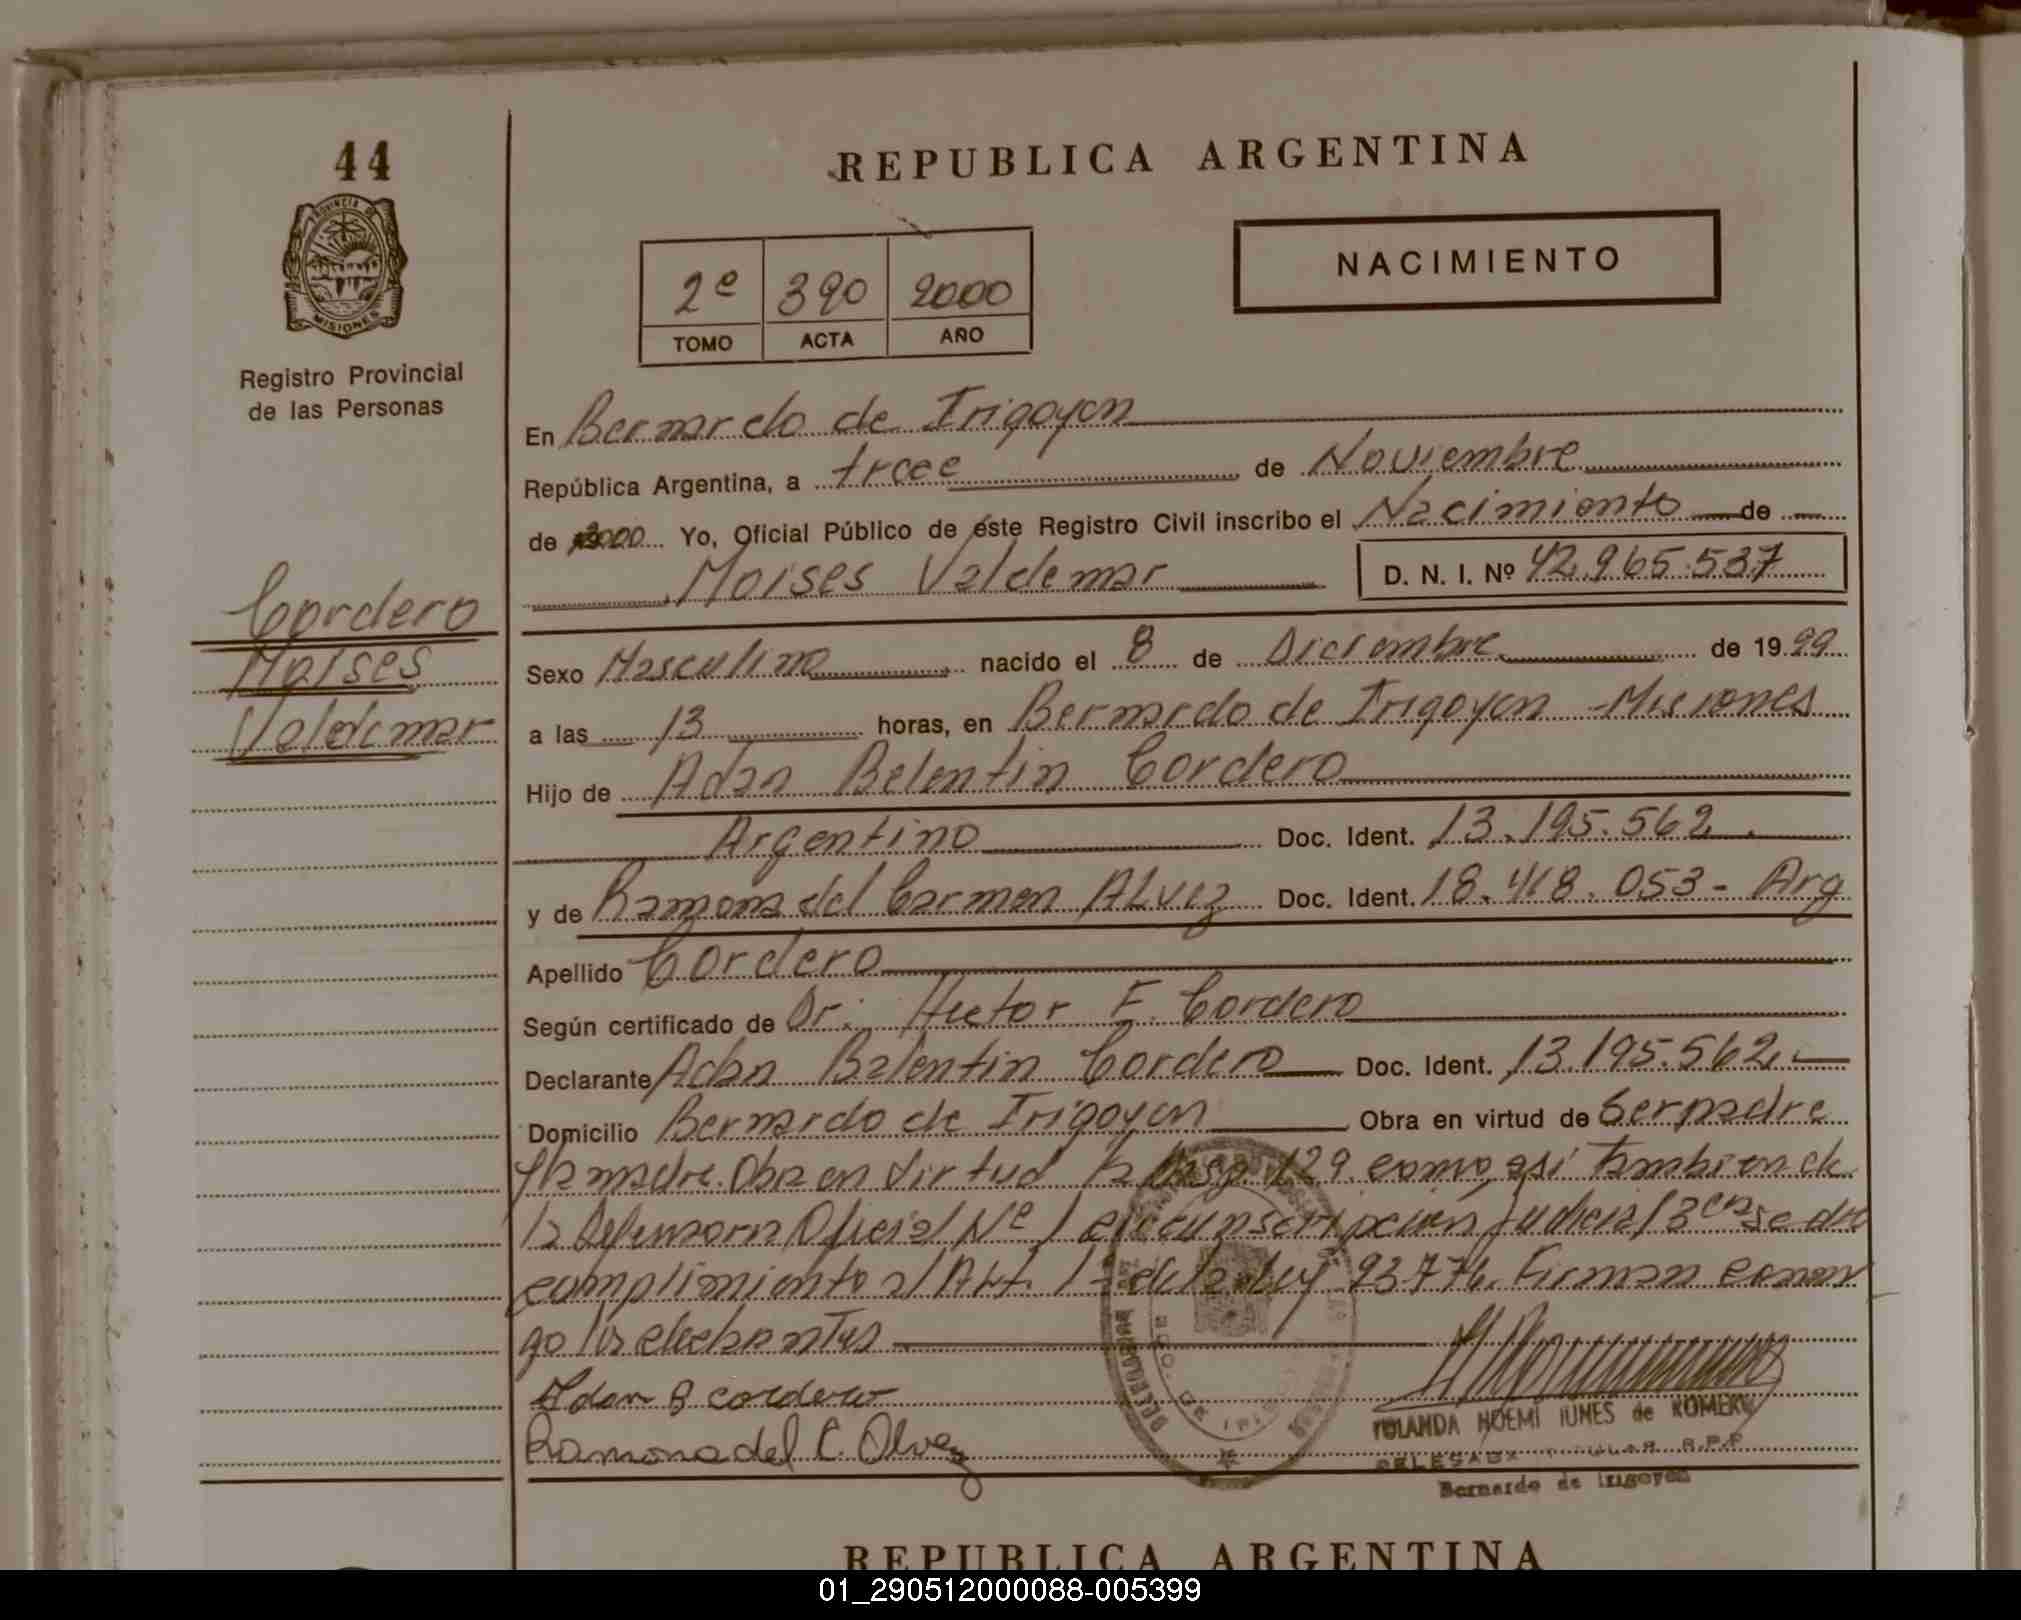 44
PROVINCIA DE
MISIONES
Registro Provincial
de las Personas
Cordero
Moises
Valdemar
REPUBLICA ARGENTINA
NACIMIENTO
2º 390 2000
TOMO ACTA AÑO
En Bernardo de Irigoyen
República Argentina, a trece de Noviembre
de 2000 Yo, Oficial Público de éste Registro Civil inscribo el Nacimiento de
Moises Valdemar D. N. I. Nº 42.965.537
Sexo Masculino nacido el 8 de Diciembre de 1999
a las 13 horas, en Bernardo de Irigoyen - Misiones
Hijo de Adan Belentin Cordero
Argentino Doc. Ident. 13.195.562.
y de Ramona del Carmen ALvez Doc. Ident. 18.418.053 - Arg
Apellido Cordero
Según certificado de Dr. Hector F. Cordero
Declarante Adan Balentin Cordero Doc. Ident. 13.195.562.
Domicilio Bernardo de Irigoyen Obra en virtud de Ser padre
y la madre. Obra en virtud la 129. como asi Tambien de
la Defensoria Oficial Nº 1 circunscripcion judicial 3era se dio
complimiento al Art. 1 de la Ley 23.776. Firman conmi
go los
Adan B cordero
Ramona del C. Olvez
YOLANDA NOEMI IUNES de ROMERO
DELEGADA TITULAR R.P.P.
Bernardo de Irigoyen
REPUBLICA ARGENTINA
01_290512000088-005399